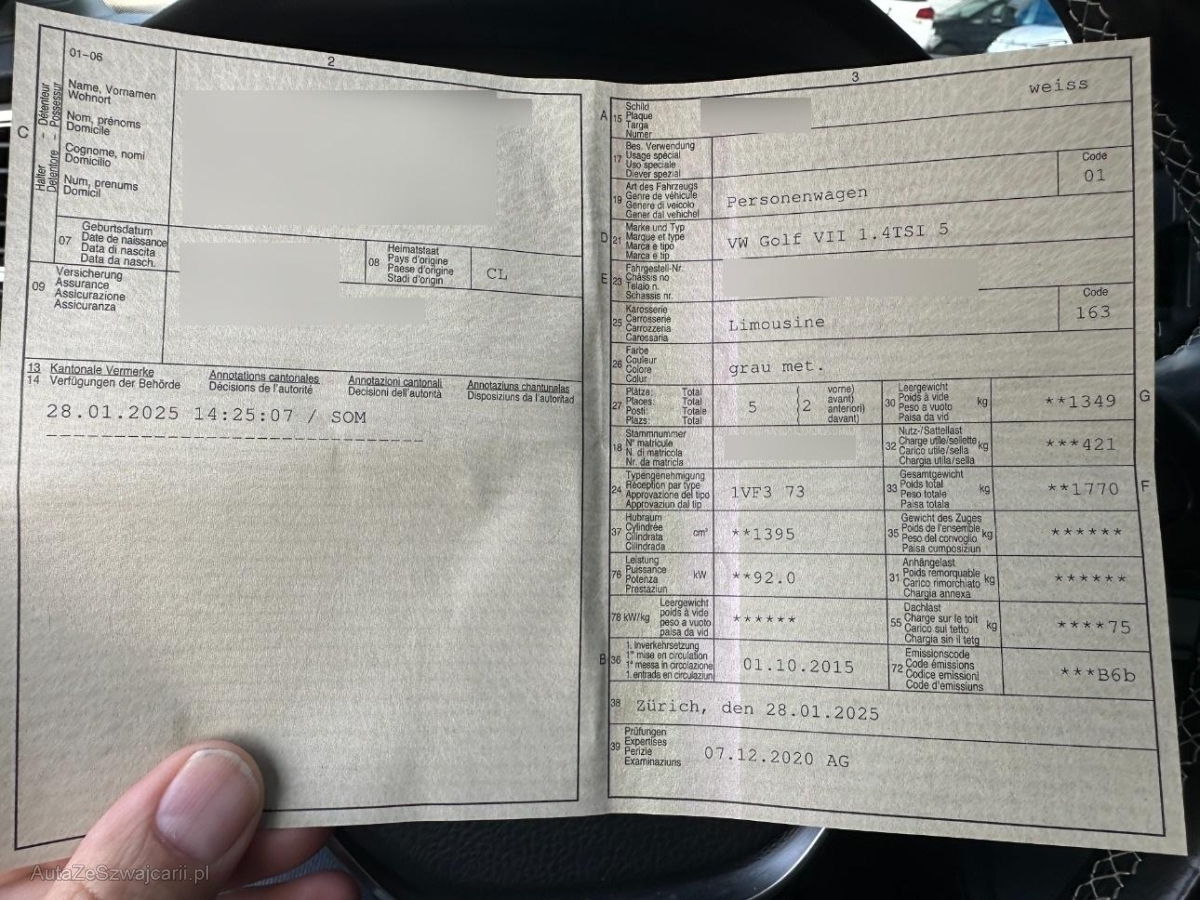 2
01-06
C
Halter - Détenteur
Detentore - Possessur
Name, Vornamen
Wohnort
Nom, prénoms
Domicile
Cognome, nomi
Domicilio
Num, prenums
Domicil
07
Geburtsdatum
Date de naissance
Data di nascita
Data da nasch.
08
Heimatstaat
Pays d'origine
Paese d'origine
Stadi d'origin
CL
09
Versicherung
Assurance
Assicurazione
Assicuranza
13 Kantonale Vermerke Annotations cantonales Annotazioni cantonali Annotaziuns chantunalas
14 Verfügungen der Behörde Décisions de l'autorité Decisioni dell'autorità Disposiziuns da l'autoritad
28.01.2025 14:25:07 / SOM
3
weiss
A 15
Schild
Plaque
Targa
Numer
17
Bes. Verwendung
Usage spécial
Uso speciale
Diever spezial
Code
01
19
Art des Fahrzeugs
Genre de véhicule
Genere di veicolo
Gener dal vehichel
Personenwagen
D 21
Marke und Typ
Marque et type
Marca e tipo
Marca e tip
VW Golf VII 1.4TSI 5
E 23
Fahrgestell-Nr.
Châssis no
Telaio n.
Schassis nr.
25
Karosserie
Carrosserie
Carrozzeria
Carossaria
Limousine
Code
163
26
Farbe
Couleur
Colore
Calur
grau met.
27
Plätze: Total
Places: Total
Posti: Totale
Plazs: Total
5
2
vorne)
avant)
anteriori)
davant)
30
Leergewicht
Poids à vide
Peso a vuoto
Paisa da vid
kg
**1349
G
18
Stammnummer
N° matricule
N. di matricola
Nr. da matricla
32
Nutz-/Sattellast
Charge utile/sellette
Carico utile/sella
Chargia utila/sella
kg
***421
24
Typengenehmigung
Réception par type
Approvazione del tipo
Approvaziun dal tip
1VF3 73
33
Gesamtgewicht
Poids total
Peso totale
Paisa totala
kg
**1770
F
37
Hubraum
Cylindrée
Cilindrata
Cilindrada
cm³
**1395
35
Gewicht des Zuges
Poids de l'ensemble
Peso del convoglio
Paisa cumposiziun
kg
******
76
Leistung
Puissance
Potenza
Prestaziun
kW
**92.0
31
Anhängelast
Poids remorquable
Carico rimorchiato
Chargia annexa
kg
******
78 kW/kg
Leergewicht
poids à vide
peso a vuoto
paisa da vid
******
55
Dachlast
Charge sur le toit
Carico sul tetto
Chargia sin il tetg
kg
****75
B 36
1. Inverkehrsetzung
1re mise en circulation
1a messa in circolazione
1. entrada en circulaziun
01.10.2015
72
Emissionscode
Code émissions
Codice emissioni
Code d'emissiuns
***B6b
38
Zürich, den 28.01.2025
39
Prüfungen
Expertises
Perizie
Examinaziuns
07.12.2020 AG
AutaZeSzwajcarii.pl